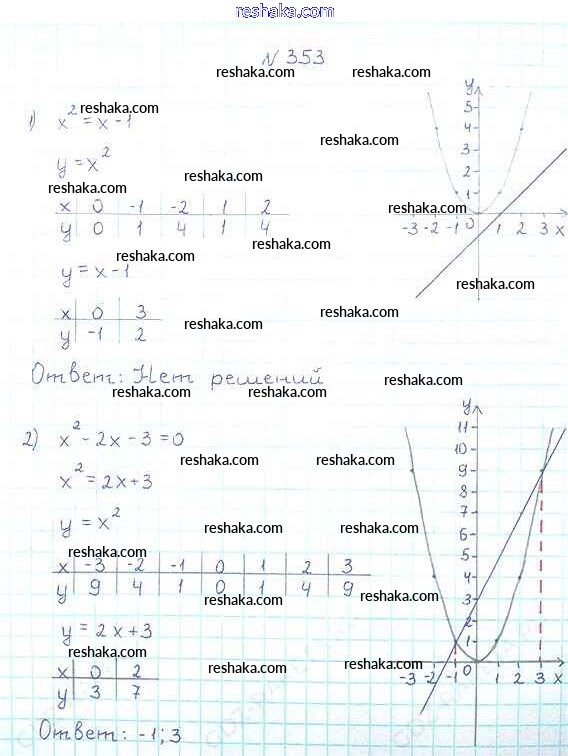 reshaka.com
N 353
reshaka.com reshaka.com
1) x² = x - 1
reshaka.com
y = x²
reshaka.com
x 0 -1 -2 1 2
y 0 1 4 1 4
reshaka.com
reshaka.com
y = x - 1
reshaka.com
x 0 3
y -1 2
reshaka.com
Ответ: Нет решений
reshaka.com reshaka.com
y
5
4
3
2
1
reshaka.com
-3 -2 -1 0 1 2 3 x
reshaka.com
reshaka.com
2) x² - 2x - 3 = 0
reshaka.com
x² = 2x + 3
y = x²
reshaka.com
reshaka.com
x -3 -2 -1 0 1 2 3
y 9 4 1 0 1 4 9
reshaka.com
y = 2x + 3
reshaka.com
reshaka.com
x 0 2
y 3 7
reshaka.com
Ответ: -1; 3
y
11
10
9
8
7
6
5
4
3
2
1
reshaka.com
reshaka.com
reshaka.com
reshaka.com
-3 -2 -1 0 1 2 3 x
reshaka.com